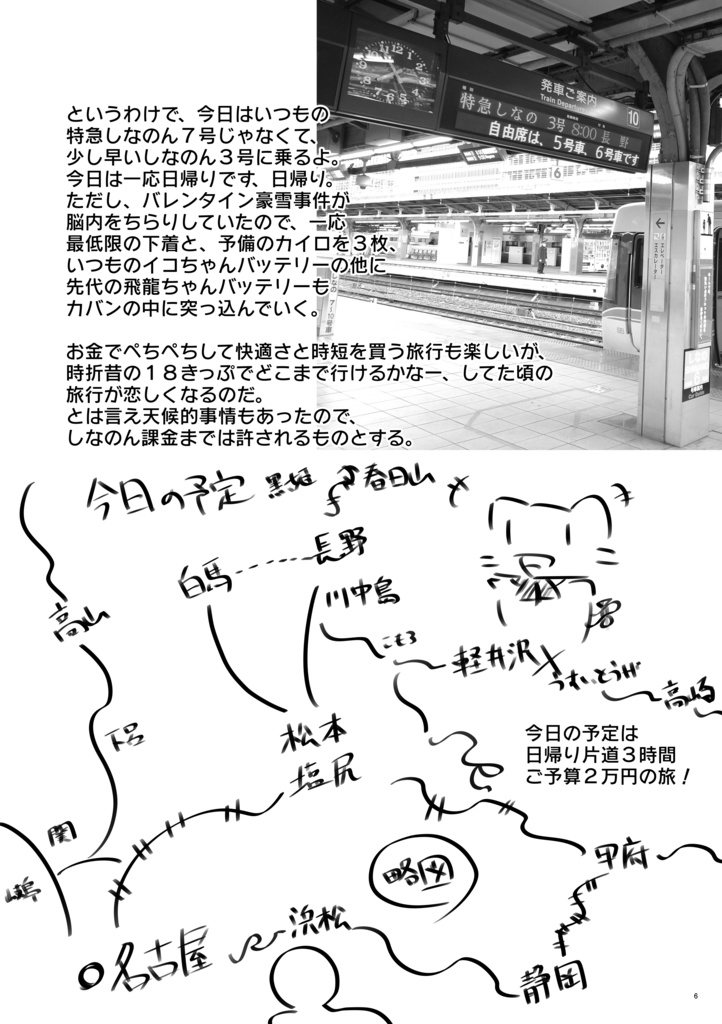 発車ご案内
Train Departures
10
特急しなの 3号 8:00 長野
自由席は、5号車、6号車です
16
エレベーター
エスカレーター
というわけで、今日はいつもの
特急しなのん７号じゃなくて、
少し早いしなのん３号に乗るよ。
今日は一応日帰りです、日帰り。
ただし、バレンタイン豪雪事件が
脳内をちらりしていたので、一応
最低限の下着と、予備のカイロを３枚、
いつものイコちゃんバッテリーの他に
先代の飛龍ちゃんバッテリーも
カバンの中に突っ込んでいく。
お金でぺちぺちして快適さと時短を買う旅行も楽しいが、
時折昔の１８きっぷでどこまで行けるかなー、してた頃の
旅行が恋しくなるのだ。
とは言え天候的事情もあったので、
しなのん課金までは許されるものとする。
今日の予定
黒姫
春日山
白馬
長野
川中島
高山
こもろ
軽井沢
うすいとうげ
高崎
下呂
松本
塩尻
今日の予定は
日帰り片道３時間
ご予算２万円の旅！
関
略図
甲府
名古屋
浜松
静岡
6